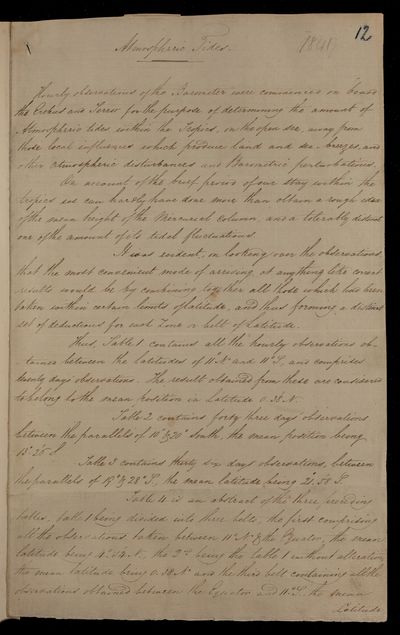 12
Atmospheric Tides.
Hourly observations of the Barometer were commenced on board
the Erebus and Terror for the purpose of determining the amount of
Atmospheric tides within the Tropics, on the open sea, away from
those local influences which produce land and sea-breezes, and
other atmospheric disturbances and Barometric perturbations.
On account of the brief period of our stay within the
tropics we can hardly have done more than obtain a rough idea
of the mean height of the Mercurial Column, and a tolerably distinct
one of the amount of its tidal fluctuations.
It was evident, on looking over the observations,
that the most convenient mode of arriving at anything like correct
results would be by combining together all those which had been
taken within certain limits of latitude, and thus forming a distinct
set of deductions for each Zone or belt of Latitude.
Thus, Table 1 contains all the hourly observations ob-
tained between the latitudes of 11° N and 11° S, and comprises
twenty days observations. The result obtained from these are considered
to belong to the mean position in Latitude 0.38 N.
Table 2 contains forty three days observations
between the parallels of 10° & 20° South, the mean position being
15° 26' S
Table 3 contains thirty six days observations, between
the parallels of 19° & 28° S, the mean latitude being 21.58 S.
Table 4 is an abstract of the three preceding
tables, table 1 being divided into three belts, the first comprising
all the observations taken between 11° N & the Equator, the mean
latitude being N. the 2nd being the table 1 without alteration
the mean latitude being 0.38 N and the third belt containing all the
observations obtained between the Equator and 11° S. the mean
Latitude